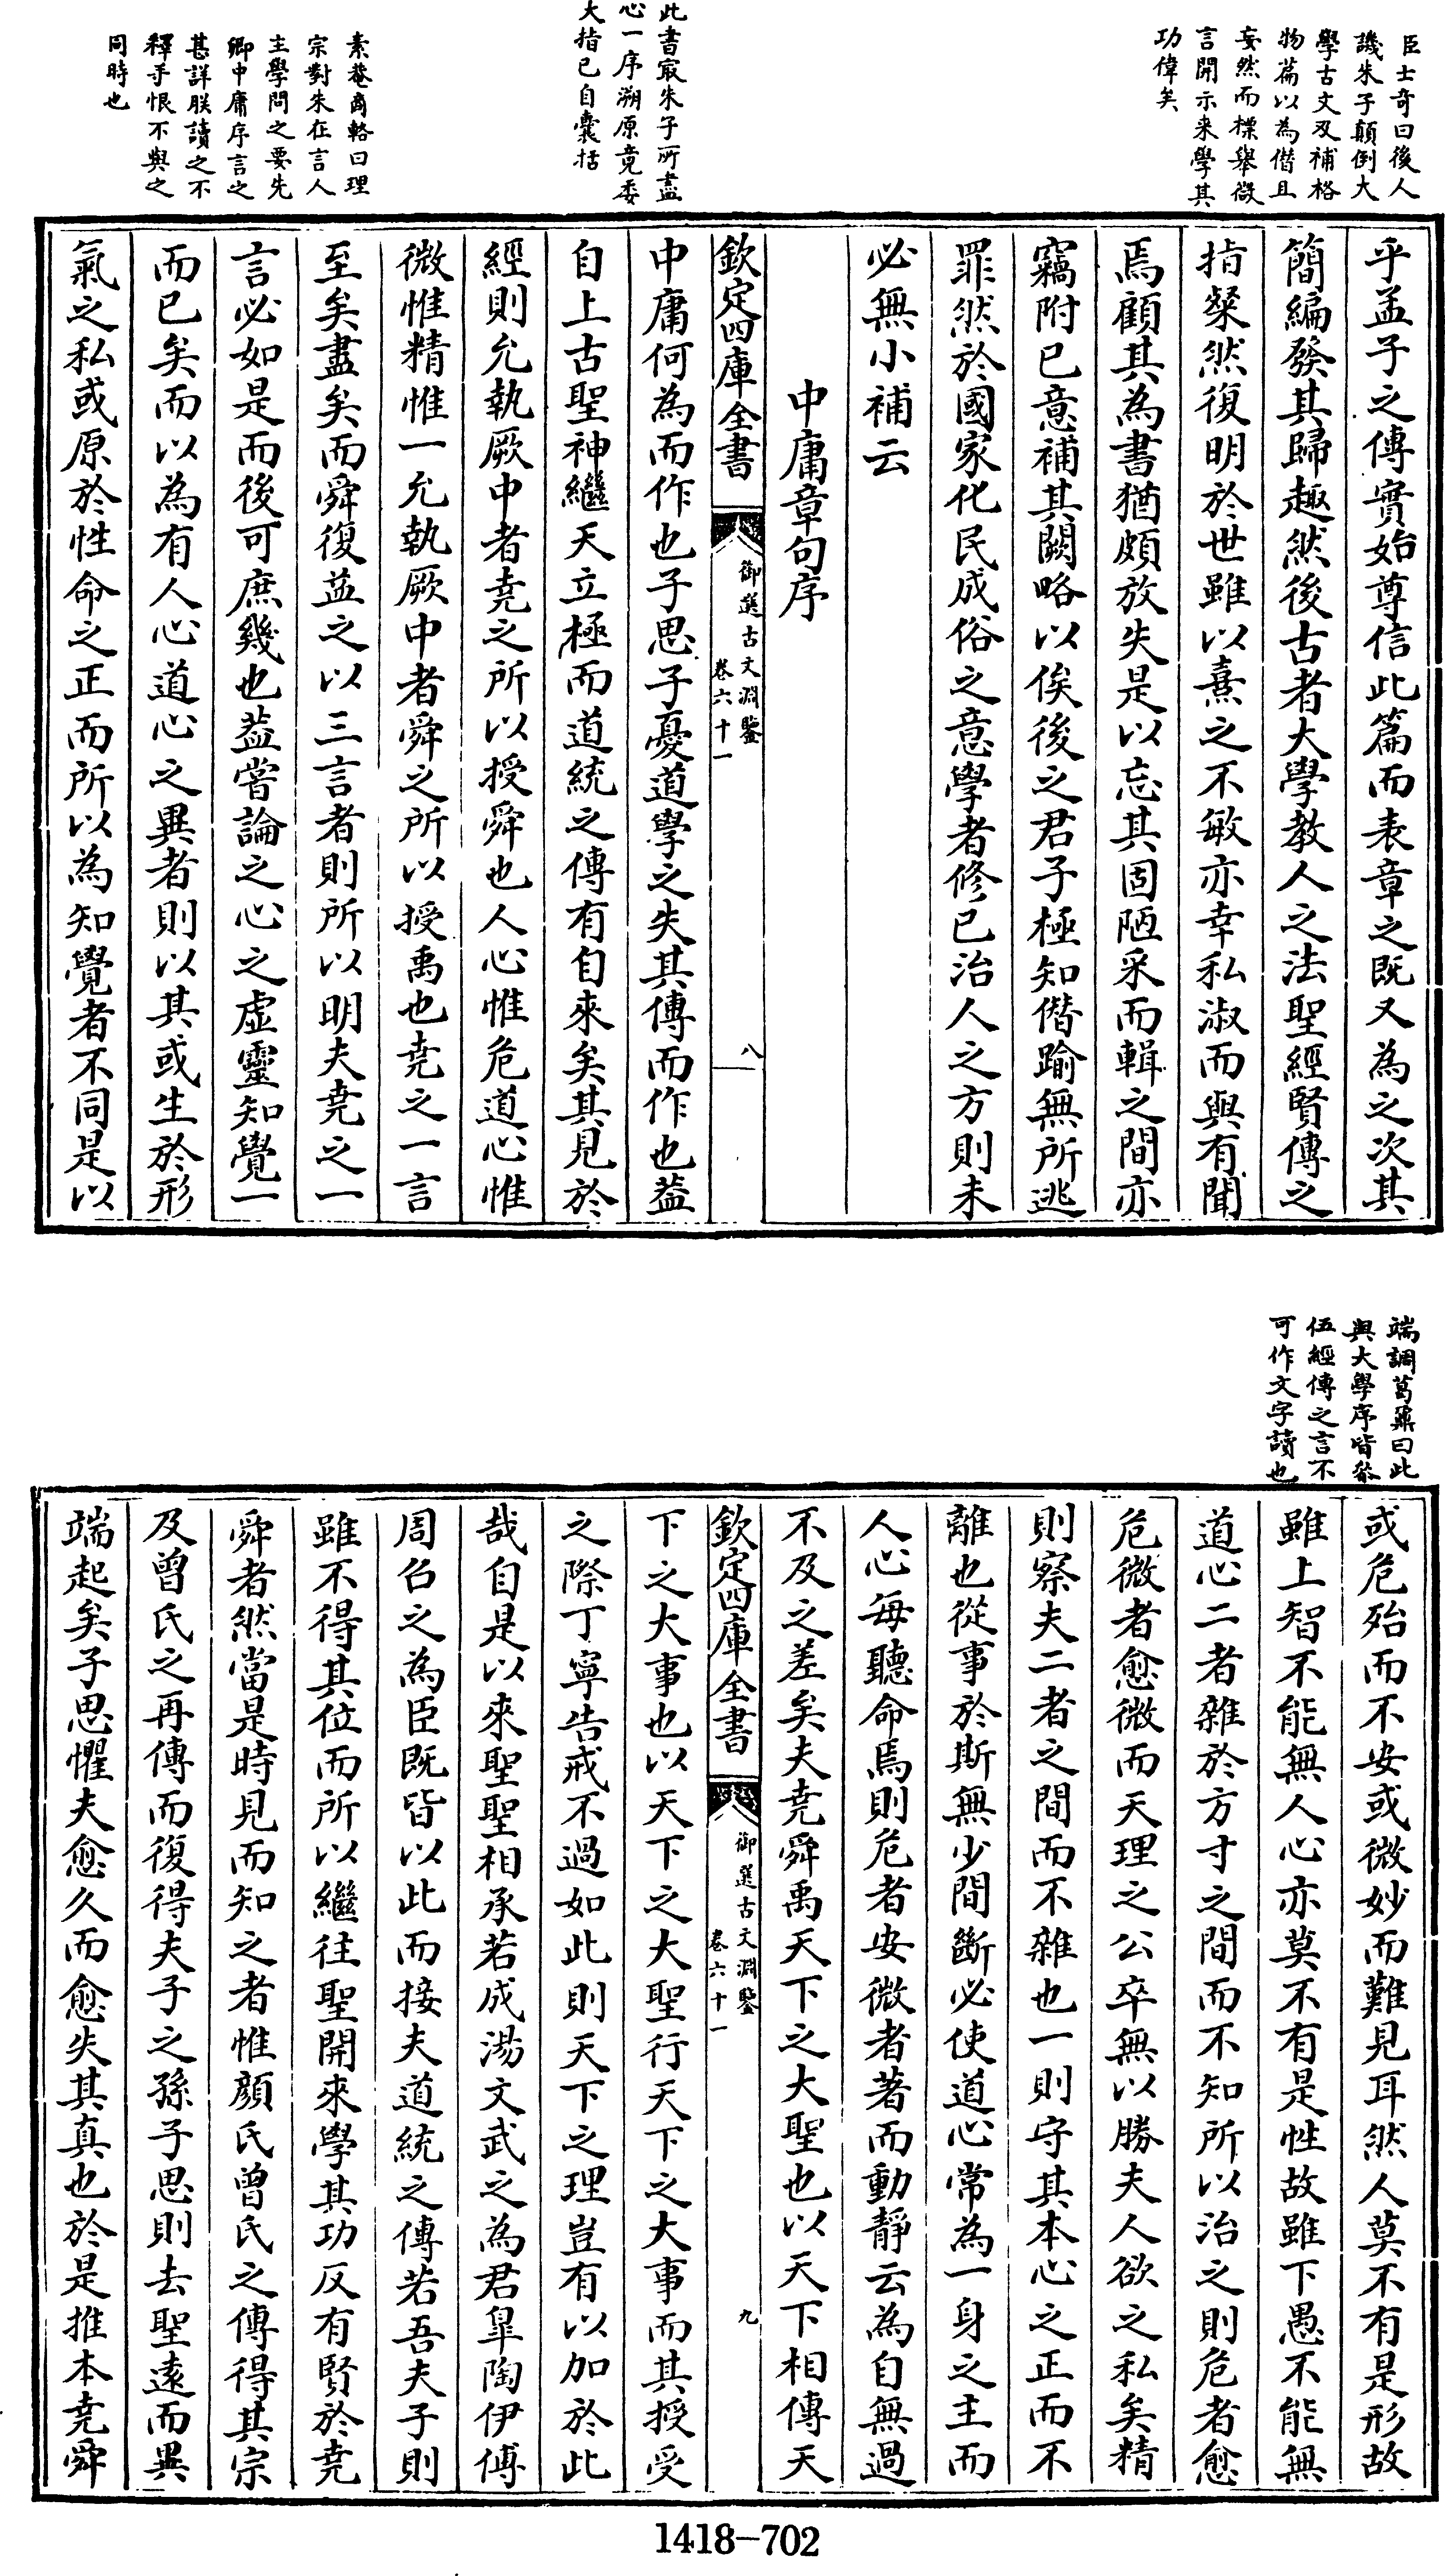 臣士奇曰後人
譏朱子顛倒大
學古文及補格
物篇以為僭且
妄然而標舉微
言開示来學其
功偉矣
乎孟子之傳實始尊信此篇而表章之既又為之次其
簡編發其歸趣然後古者大學教人之法聖經賢傳之
指粲然復明於世雖以熹之不敏亦幸私淑而與有聞
焉顧其為書猶頗放失是以忘其固陋采而輯之間亦
竊附已意補其闕略以俟後之君子極知僭踰無所逃
罪然於國家化民成俗之意學者修已治人之方則未
必無小補云
中庸章句序
欽定四庫全書
御選古文淵鑒
卷六十一
八
此書㝡朱子所盡
心一序溯原竟委
大指已自囊括
中庸何為而作也子思子憂道學之失其傳而作也葢
自上古聖神繼天立極而道統之傳有自來矣其見於
經則允執厥中者堯之所以授舜也人心惟危道心惟
微惟精惟一允執厥中者舜之所以授禹也堯之一言
至矣盡矣而舜復益之以三言者則所以明夫堯之一
言必如是而後可庶幾也葢嘗論之心之虛靈知覺一
而已矣而以為有人心道心之異者則以其或生於形
氣之私或原於性命之正而所以為知覺者不同是以
素菴商輅曰理
宗對朱在言人
主學問之要先
卿中庸序言之
甚詳朕讀之不
釋手恨不與之
同時也
端調葛鼐曰此
與大學序皆叅
伍經傳之言不
可作文字讀也
或危殆而不安或微妙而難見耳然人莫不有是形故
雖上智不能無人心亦莫不有是性故雖下愚不能無
道心二者雜於方寸之間而不知所以治之則危者愈
危微者愈微而天理之公卒無以勝夫人欲之私矣精
則察夫二者之間而不雜也一則守其本心之正而不
離也從事於斯無少間斷必使道心常為一身之主而
人心每聽命焉則危者安微者著而動靜云為自無過
不及之差矣夫堯舜禹天下之大聖也以天下相傳天
欽定四庫全書
御選古文淵鑒
卷六十一
九
下之大事也以天下之大聖行天下之大事而其授受
之際丁寧告戒不過如此則天下之理豈有以加於此
哉自是以來聖聖相承若成湯文武之為君臯陶伊傅
周召之為臣既皆以此而接夫道統之傳若吾夫子則
雖不得其位而所以繼往聖開來學其功反有賢於堯
舜者然當是時見而知之者惟顏氏曾氏之傳得其宗
及曾氏之再傳而復得夫子之孫子思則去聖遠而異
端起矣子思懼夫愈久而愈失其真也於是推本堯舜
1418-702